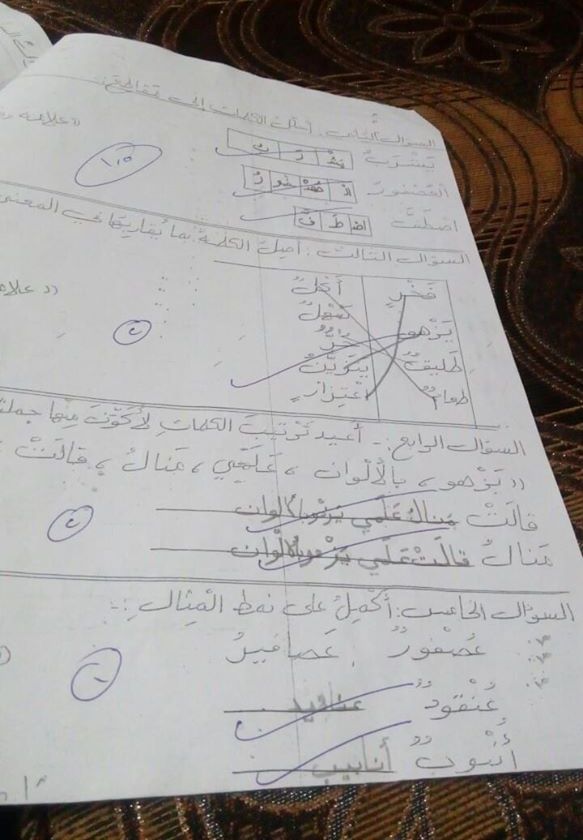 السؤال الثاني: أحلل الكلمات إلى مقاطع:
يَشْرَبُ يَشْ رَ بُ
العُصْفورُ الْ عُصْ فو رُ
اصْطَفَّ اصْ طَ فَّ
١,٥
السؤال الثالث: أصِلُ الكلمةَ بما يُقاربها في المعنى
فَخْرٍ أَكْلٌ
يَزْهو
طَليقٌ حُرٌّ
طعامٌ يَتَزَيَّنُ
اعْتِزازٍ
٢
السؤال الرابع: أُعيدُ تَرْتيبَ الكلماتِ لأُكَوِّنَ مِنها
(( يَزْهو ، بالْأَلْوانِ ، عَلَمي ، مَنالُ ، قالَتْ
قالَتْ مَنالُ عَلَمي يَزْهو بالألوان
مَنالُ قالَتْ عَلَمي يَزْهو بالألْوان
٢
السؤال الخامس: أُكْمِلُ على نمط الْمِثالِ:
عُصْفورٌ عَصافيرُ
عُنْقودٌ عناقيد
أُنْبوبٌ أنابيب